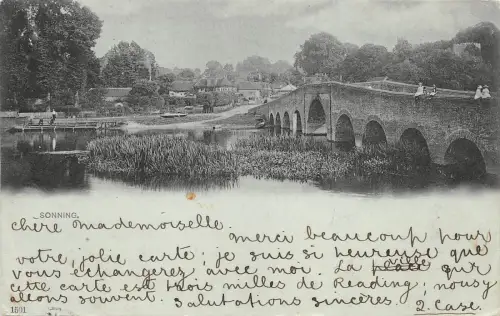 SONNING.
chère mademoiselle.
merci beaucoup pour
votre, jolie carte; je suis si heureuse que
vous échangerez avec moi. La place sur
cette carte est trois milles de Reading; nous y
allons souvent. Salutations sincères. 2. Case.
1501